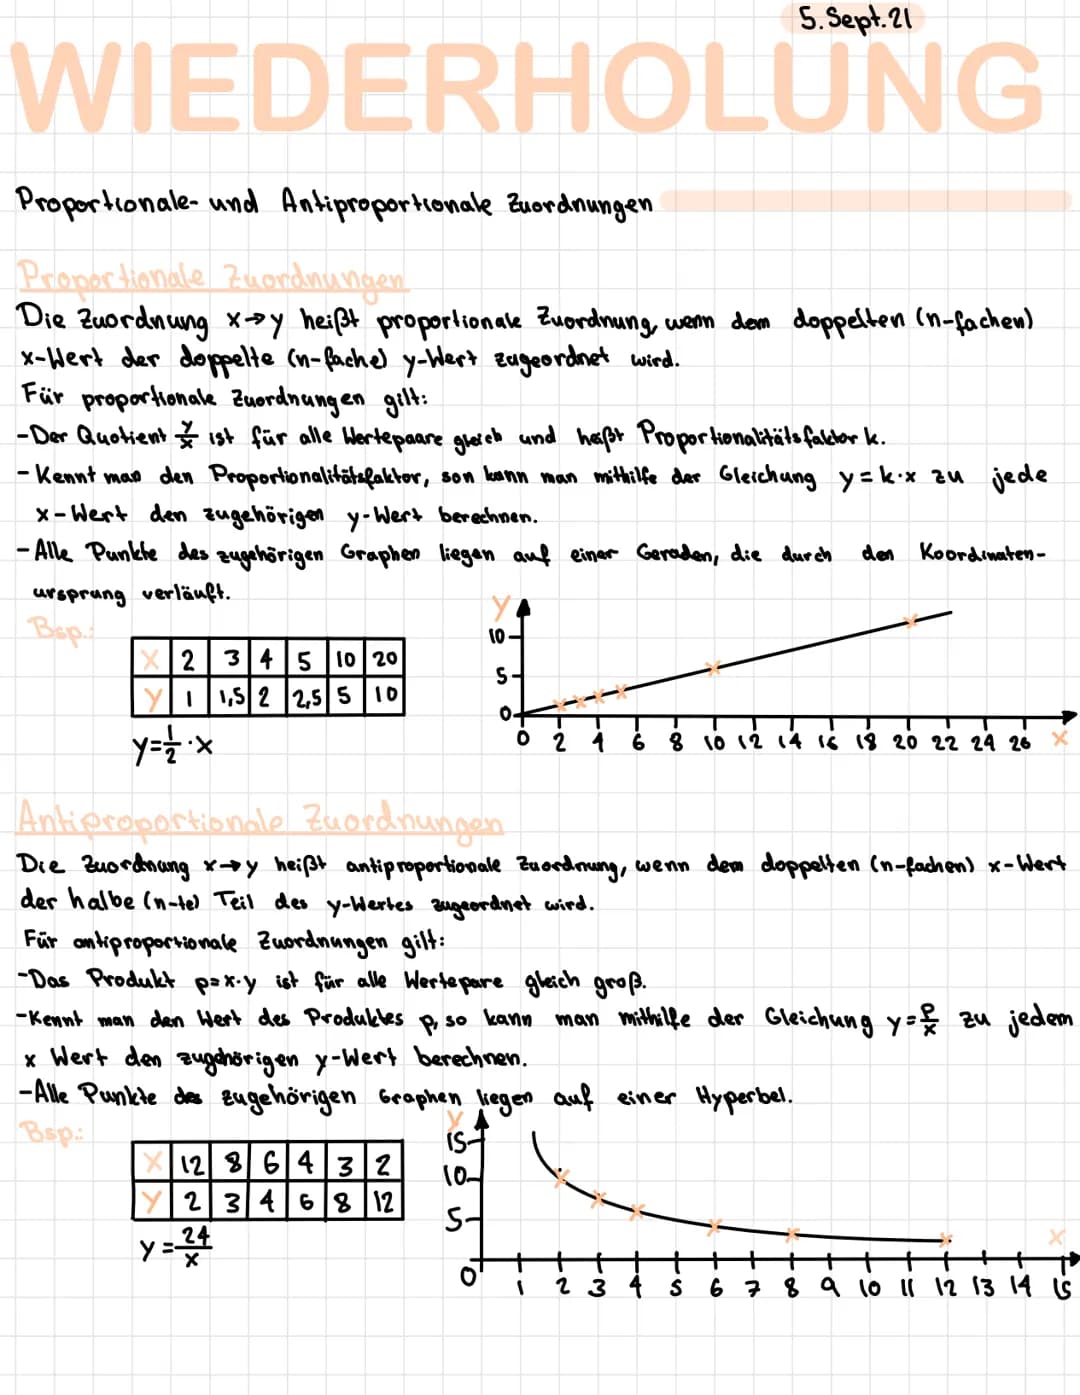 5. Sept. 21
WIEDERHOLUNG
Proportionale- und Antiproportionale Zuordnungen
Proportionale Zuordnungen
Die Zuordnung x→y heißt proportionale Zuordnung, wenn dem doppelten (n-fachen)
x-Wert der doppelte (n-fache) y-Wert zugeordnet wird.
Für proportionale Zuordnungen gilt:
-Der Quotient y/x ist für alle Wertepaare gleich und heißt Proportionalitätsfaktor k.
- Kennt man den Proportionalitätsfaktor, son kann man mithilfe der Gleichung y=k·x zu jede
x-Wert den zugehörigen y-Wert berechnen.
- Alle Punkte des zugehörigen Graphen liegen auf einer Geraden, die durch den Koordinaten-
ursprung verläuft.
Bsp.:
X 2 3 4 5 10 20
Y 1 1,5 2 2,5 5 10
y=1/2·x
Y
10
5
0
0 2 4 6 8 10 12 14 16 18 20 22 24 26 X
Antiproportionale Zuordnungen
Die Zuordnung x→y heißt antiproportionale Zuordnung, wenn dem doppelten (n-fachen) x-Wert
der halbe (n-te) Teil des y-Wertes zugeordnet wird.
Für antiproportionale Zuordnungen gilt:
-Das Produkt p=x·y ist für alle Wertepare gleich groß.
-Kennt man den Wert des Produktes p, so kann man mithilfe der Gleichung y=p/x zu jedem
x Wert den zugehörigen y-Wert berechnen.
-Alle Punkte des zugehörigen Graphen liegen auf einer Hyperbel.
Bsp.:
X 12 8 6 4 3 2
Y 2 3 4 6 8 12
y=24/x
Y
15
10
5
X
0 1 2 3 4 5 6 7 8 9 10 11 12 13 14 15